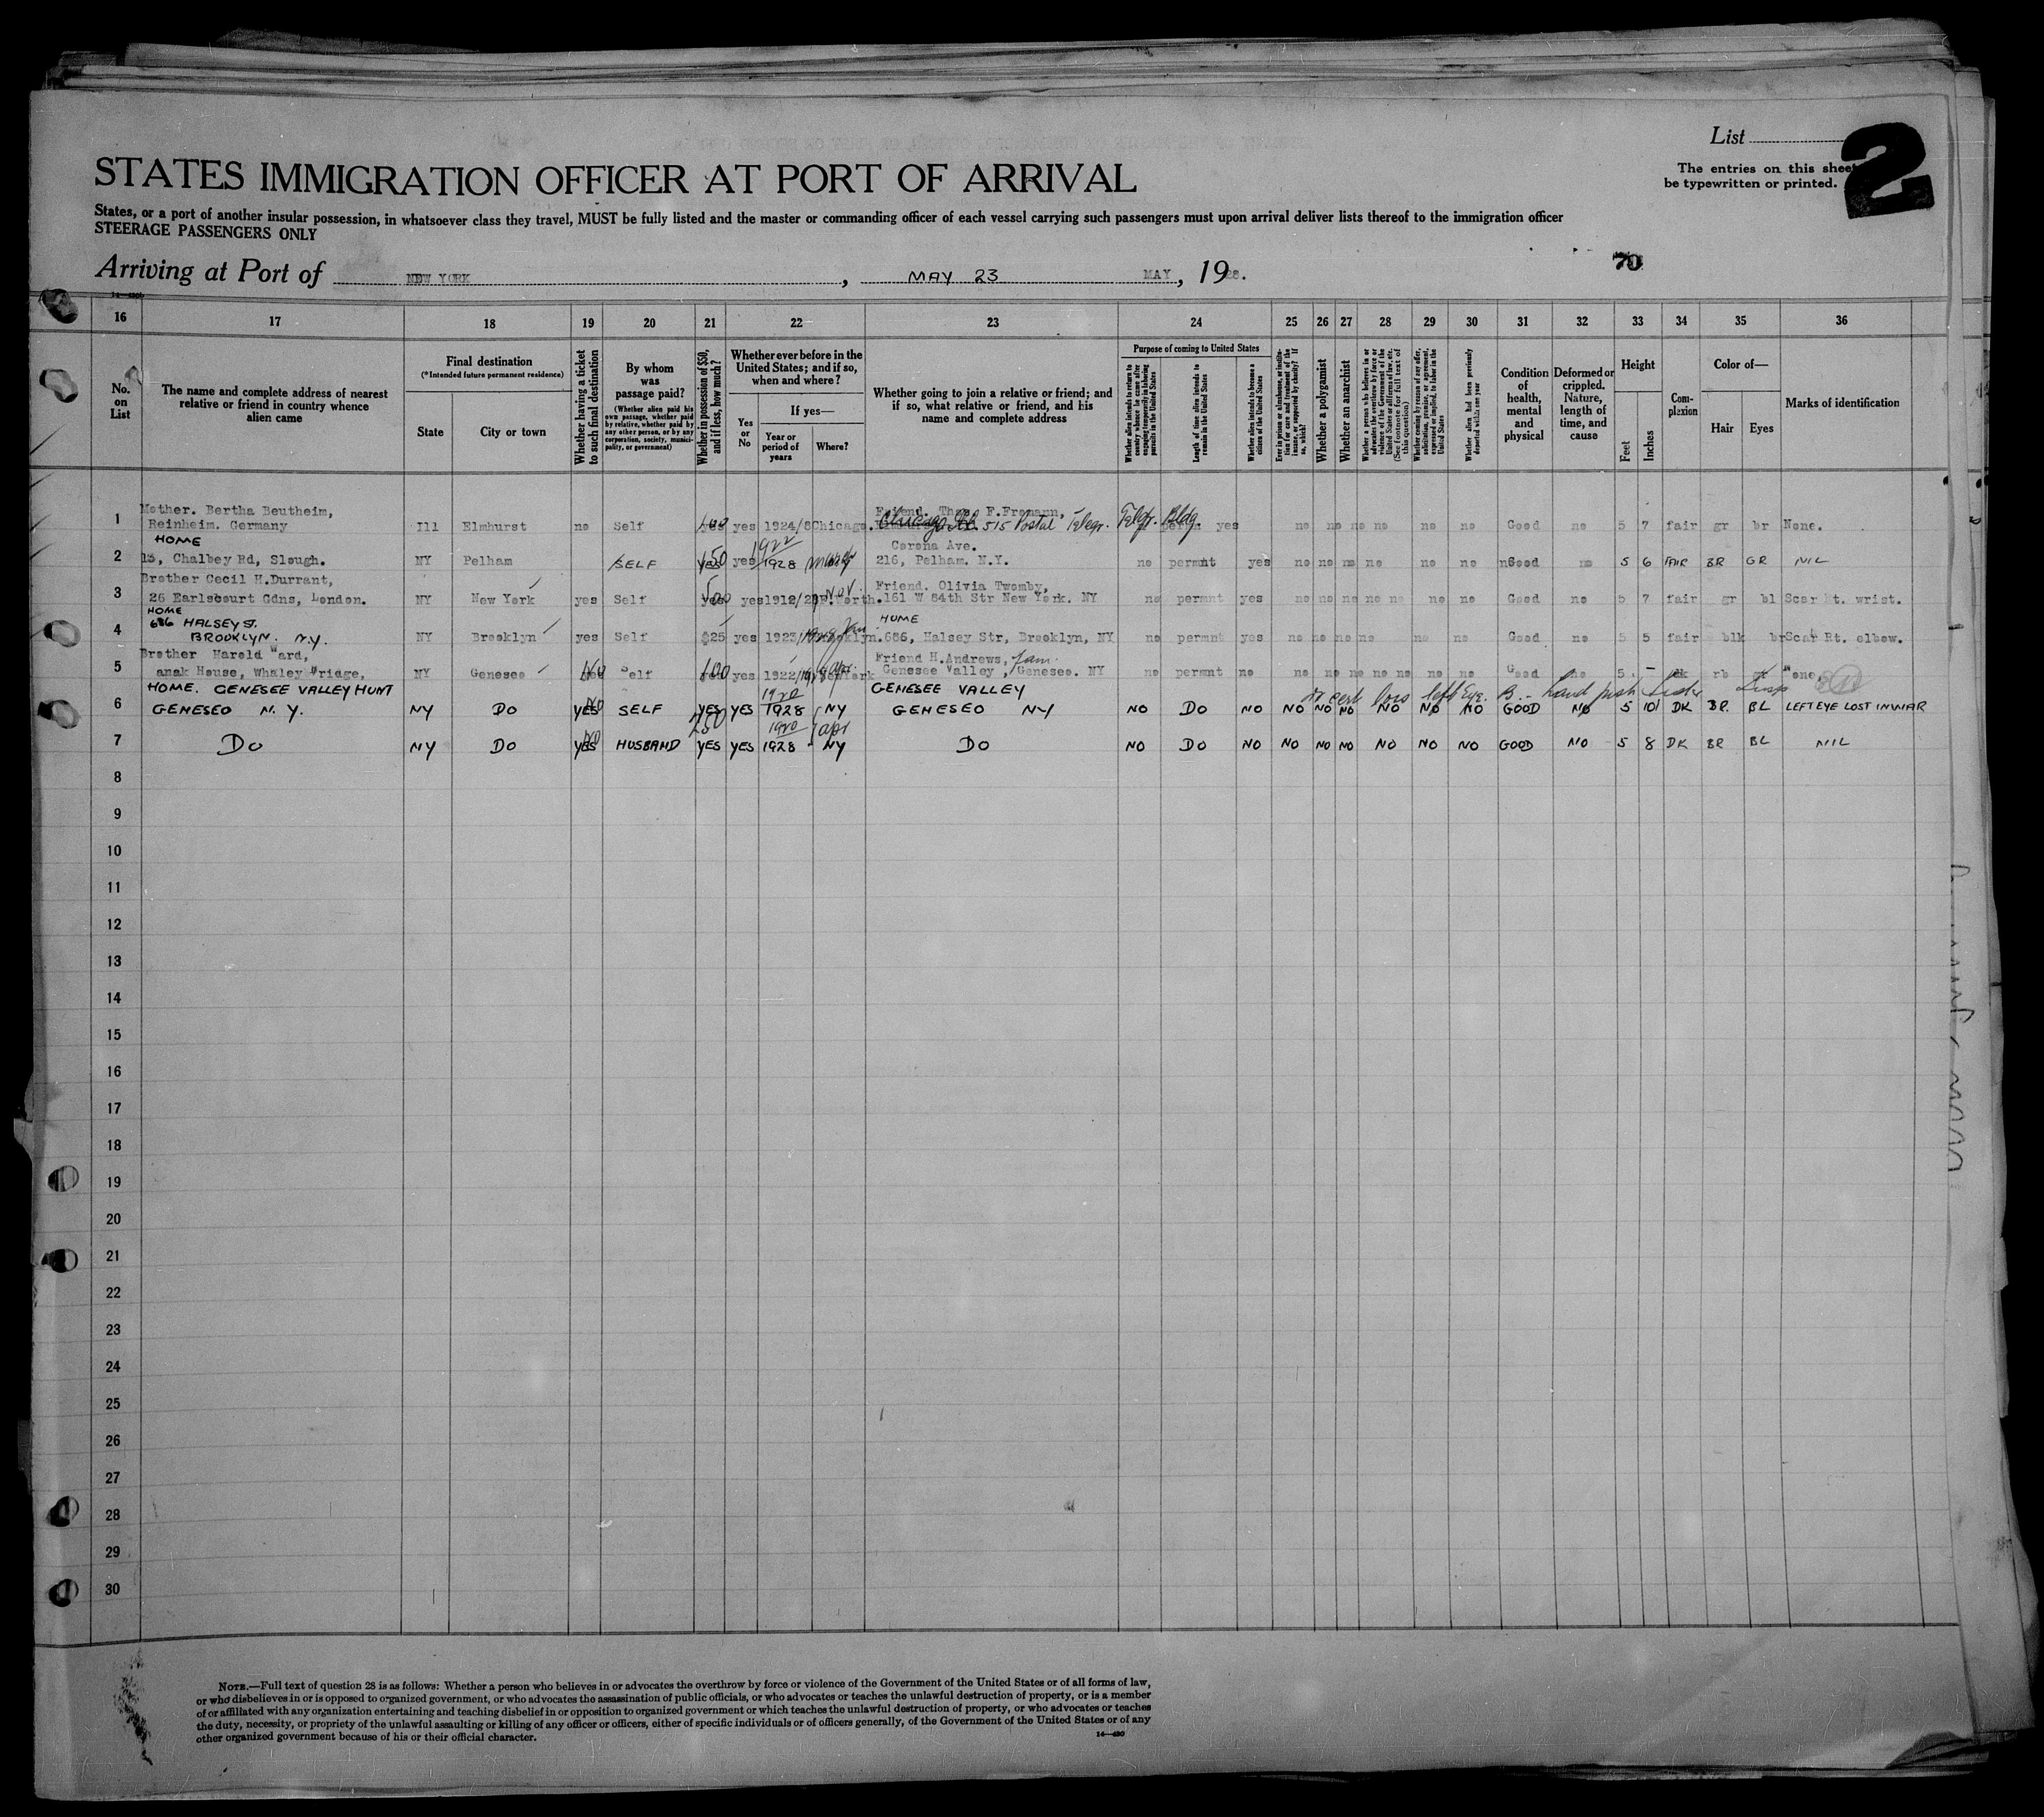 List
2
The entries on this sheet
be typewritten or printed.
STATES IMMIGRATION OFFICER AT PORT OF ARRIVAL
States, or a port of another insular possession, in whatsoever class they travel, MUST be fully listed and the master or commanding officer of each vessel carrying such passengers must upon arrival deliver lists thereof to the immigration officer
STEERAGE PASSENGERS ONLY
70
Arriving at Port of NEW YORK, MAY 23 MAY, 1928.
16 17 18 19 20 21 22 23 24 25 26 27 28 29 30 31 32 33 34 35 36
No. on List
The name and complete address of nearest relative or friend in country whence alien came
Final destination
(*Intended future permanent residence)
State
City or town
Whether having a ticket to such final destination
By whom was passage paid?
(Whether alien paid his own passage, whether paid by relative, whether paid by any other person, or by any corporation, society, municipality, or government)
Whether in possession of $50, and if less, how much?
Whether ever before in the United States; and if so, when and where?
Yes or No
If yes—
Year or period of years
Where?
Whether going to join a relative or friend; and if so, what relative or friend, and his name and complete address
Purpose of coming to United States
Whether alien intends to return to country whence he came after engaging temporarily in laboring pursuits in the United States
Length of time alien intends to remain in the United States
Whether alien intends to become a citizen of the United States
Ever in prison or almshouse, or institution for care and treatment of the insane, or supported by charity? If so, which?
Whether a polygamist
Whether an anarchist
Whether a person who believes in or advocates the overthrow by force or violence of the Government of the United States or all forms of law, etc. (See footnote for full text of this question)
Whether coming by reason of any offer, solicitation, promise, or agreement, expressed or implied, to labor in the United States
Whether alien had been previously deported within one year
Condition of health, mental and physical
Deformed or crippled. Nature, length of time, and cause
Height
Feet
Inches
Complexion
Color of—
Hair
Eyes
Marks of identification
1 Mother. Bertha Beutheim, Friend. F.Fremann,
Reinheim. Germany Ill Elmhurst no Self 100 yes 1924/8 Chicago. 515 Postal Telegr. Telgr. Bldg. yes no no no no no no Good no 5 7 fair gr br None.
HOME 1922 Corona Ave.
2 13, Chalbey Rd, Slough. NY Pelham SELF 150 yes 1928 216, Pelham. N.Y. no permnt yes no no no no no no Good no 5 6 FAIR BR GR NIL
3 Brother Cecil H.Durrant, Nov. Friend. Olivia Twomby,
26 Earlscourt Gdns, London. NY New York yes Self yes 1912/ 161 W 84th Str New York. NY no permnt yes no no no no no no no Good no 5 7 fair gr bl Scar Rt. wrist.
HOME HOME
4 686 HALSEY ST.
BROOKLYN. N.Y. NY Brooklyn yes Self $25 yes 1923/ Brooklyn. 686, Halsey Str, Brooklyn, NY no permnt yes no no no no no no Good no 5 5 fair blk br Scar Rt. elbow.
5 Brother Harold Ward, Friend H.Andrews,
anak House, Whaley Bridge, NY Genesee Self 100 yes 1922/ Genesee Valley, Genesee. NY no permnt no no no no no no no no Good no 5 - dk None,
HOME. GENESEE VALLEY HUNT 1920 GENESEE VALLEY
6 GENESEO N.Y. NY DO YES SELF YES YES 1928 NY GENESEO NY NO DO NO NO NO NO NO NO NO GOOD NO 5 10 DK BR. BL LEFT EYE LOST IN WAR
250 1920 apr
7 DO NY DO YES HUSBAND YES YES 1928 NY DO NO DO NO NO NO NO NO NO NO GOOD NO 5 8 DK BR BL NIL
8
9
10
11
12
13
14
15
16
17
18
19
20
21
22
23
24
25
26
27
28
29
30
NOTE.—Full text of question 28 is as follows: Whether a person who believes in or advocates the overthrow by force or violence of the Government of the United States or of all forms of law,
or who disbelieves in or is opposed to organized government, or who advocates the assassination of public officials, or who advocates or teaches the unlawful destruction of property, or is a member
of or affiliated with any organization entertaining and teaching disbelief in or opposition to organized government or which teaches the unlawful destruction of property, or who advocates or teaches
the duty, necessity, or propriety of the unlawful assaulting or killing of any officer or officers, either of specific individuals or of officers generally, of the Government of the United States or of any
other organized government because of his or their official character.
14—430